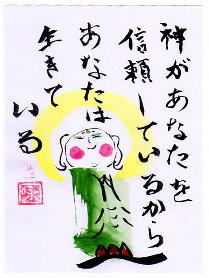 神があなたを
信頼しているから
あなたは
生きて
いる